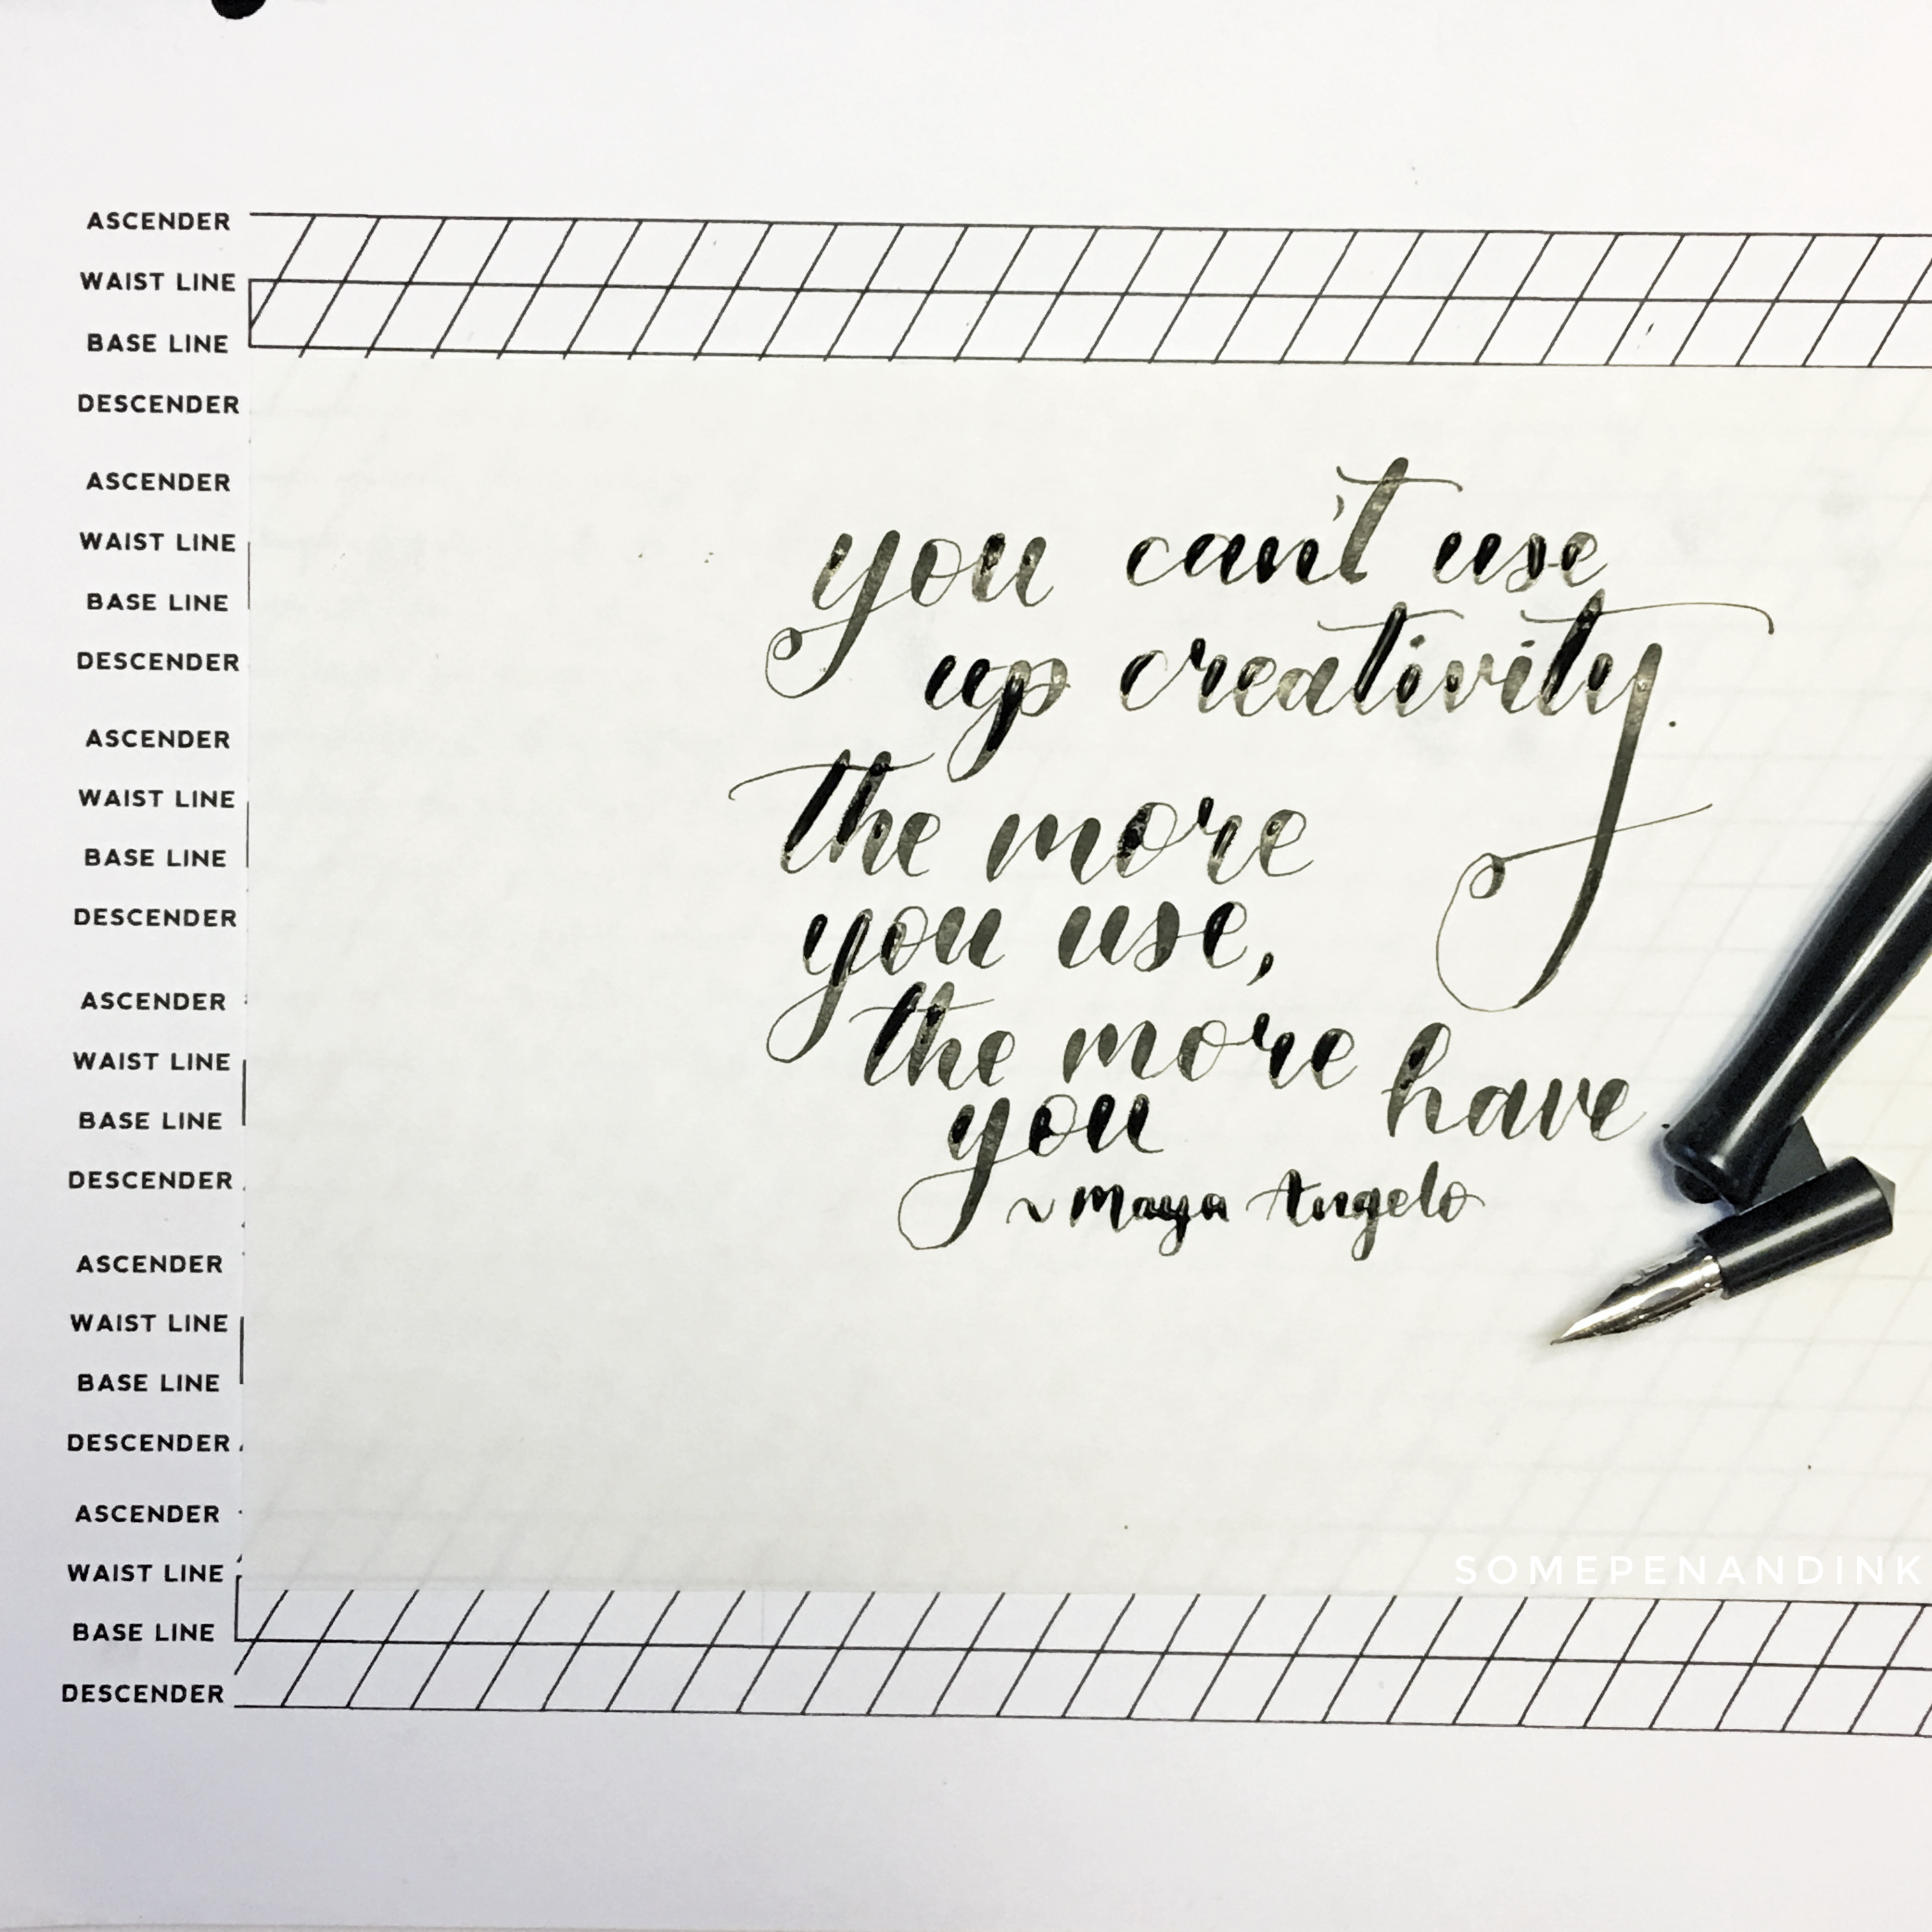 ASCENDER
WAIST LINE
BASE LINE
DESCENDER
ASCENDER
WAIST LINE
BASE LINE
DESCENDER
ASCENDER
WAIST LINE
BASE LINE
DESCENDER
ASCENDER
WAIST LINE
BASE LINE
DESCENDER
ASCENDER
WAIST LINE
BASE LINE
DESCENDER
ASCENDER
WAIST LINE
BASE LINE
DESCENDER
you can't use
up creativity.
the more
you use,
the more
you have.
~ Maya Angelo
SOMEPENANDINK